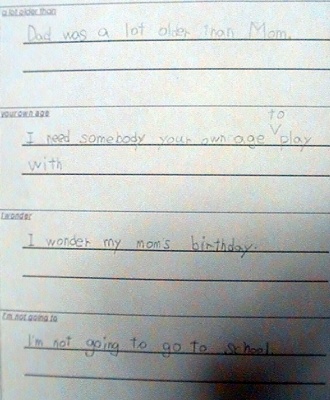 a lot older than
Dad was a lot older than Mom.
your own age
to
I need somebody your own age play
with
I wonder
I wonder my moms birthday.
I'm not going to
I'm not going to go to school.